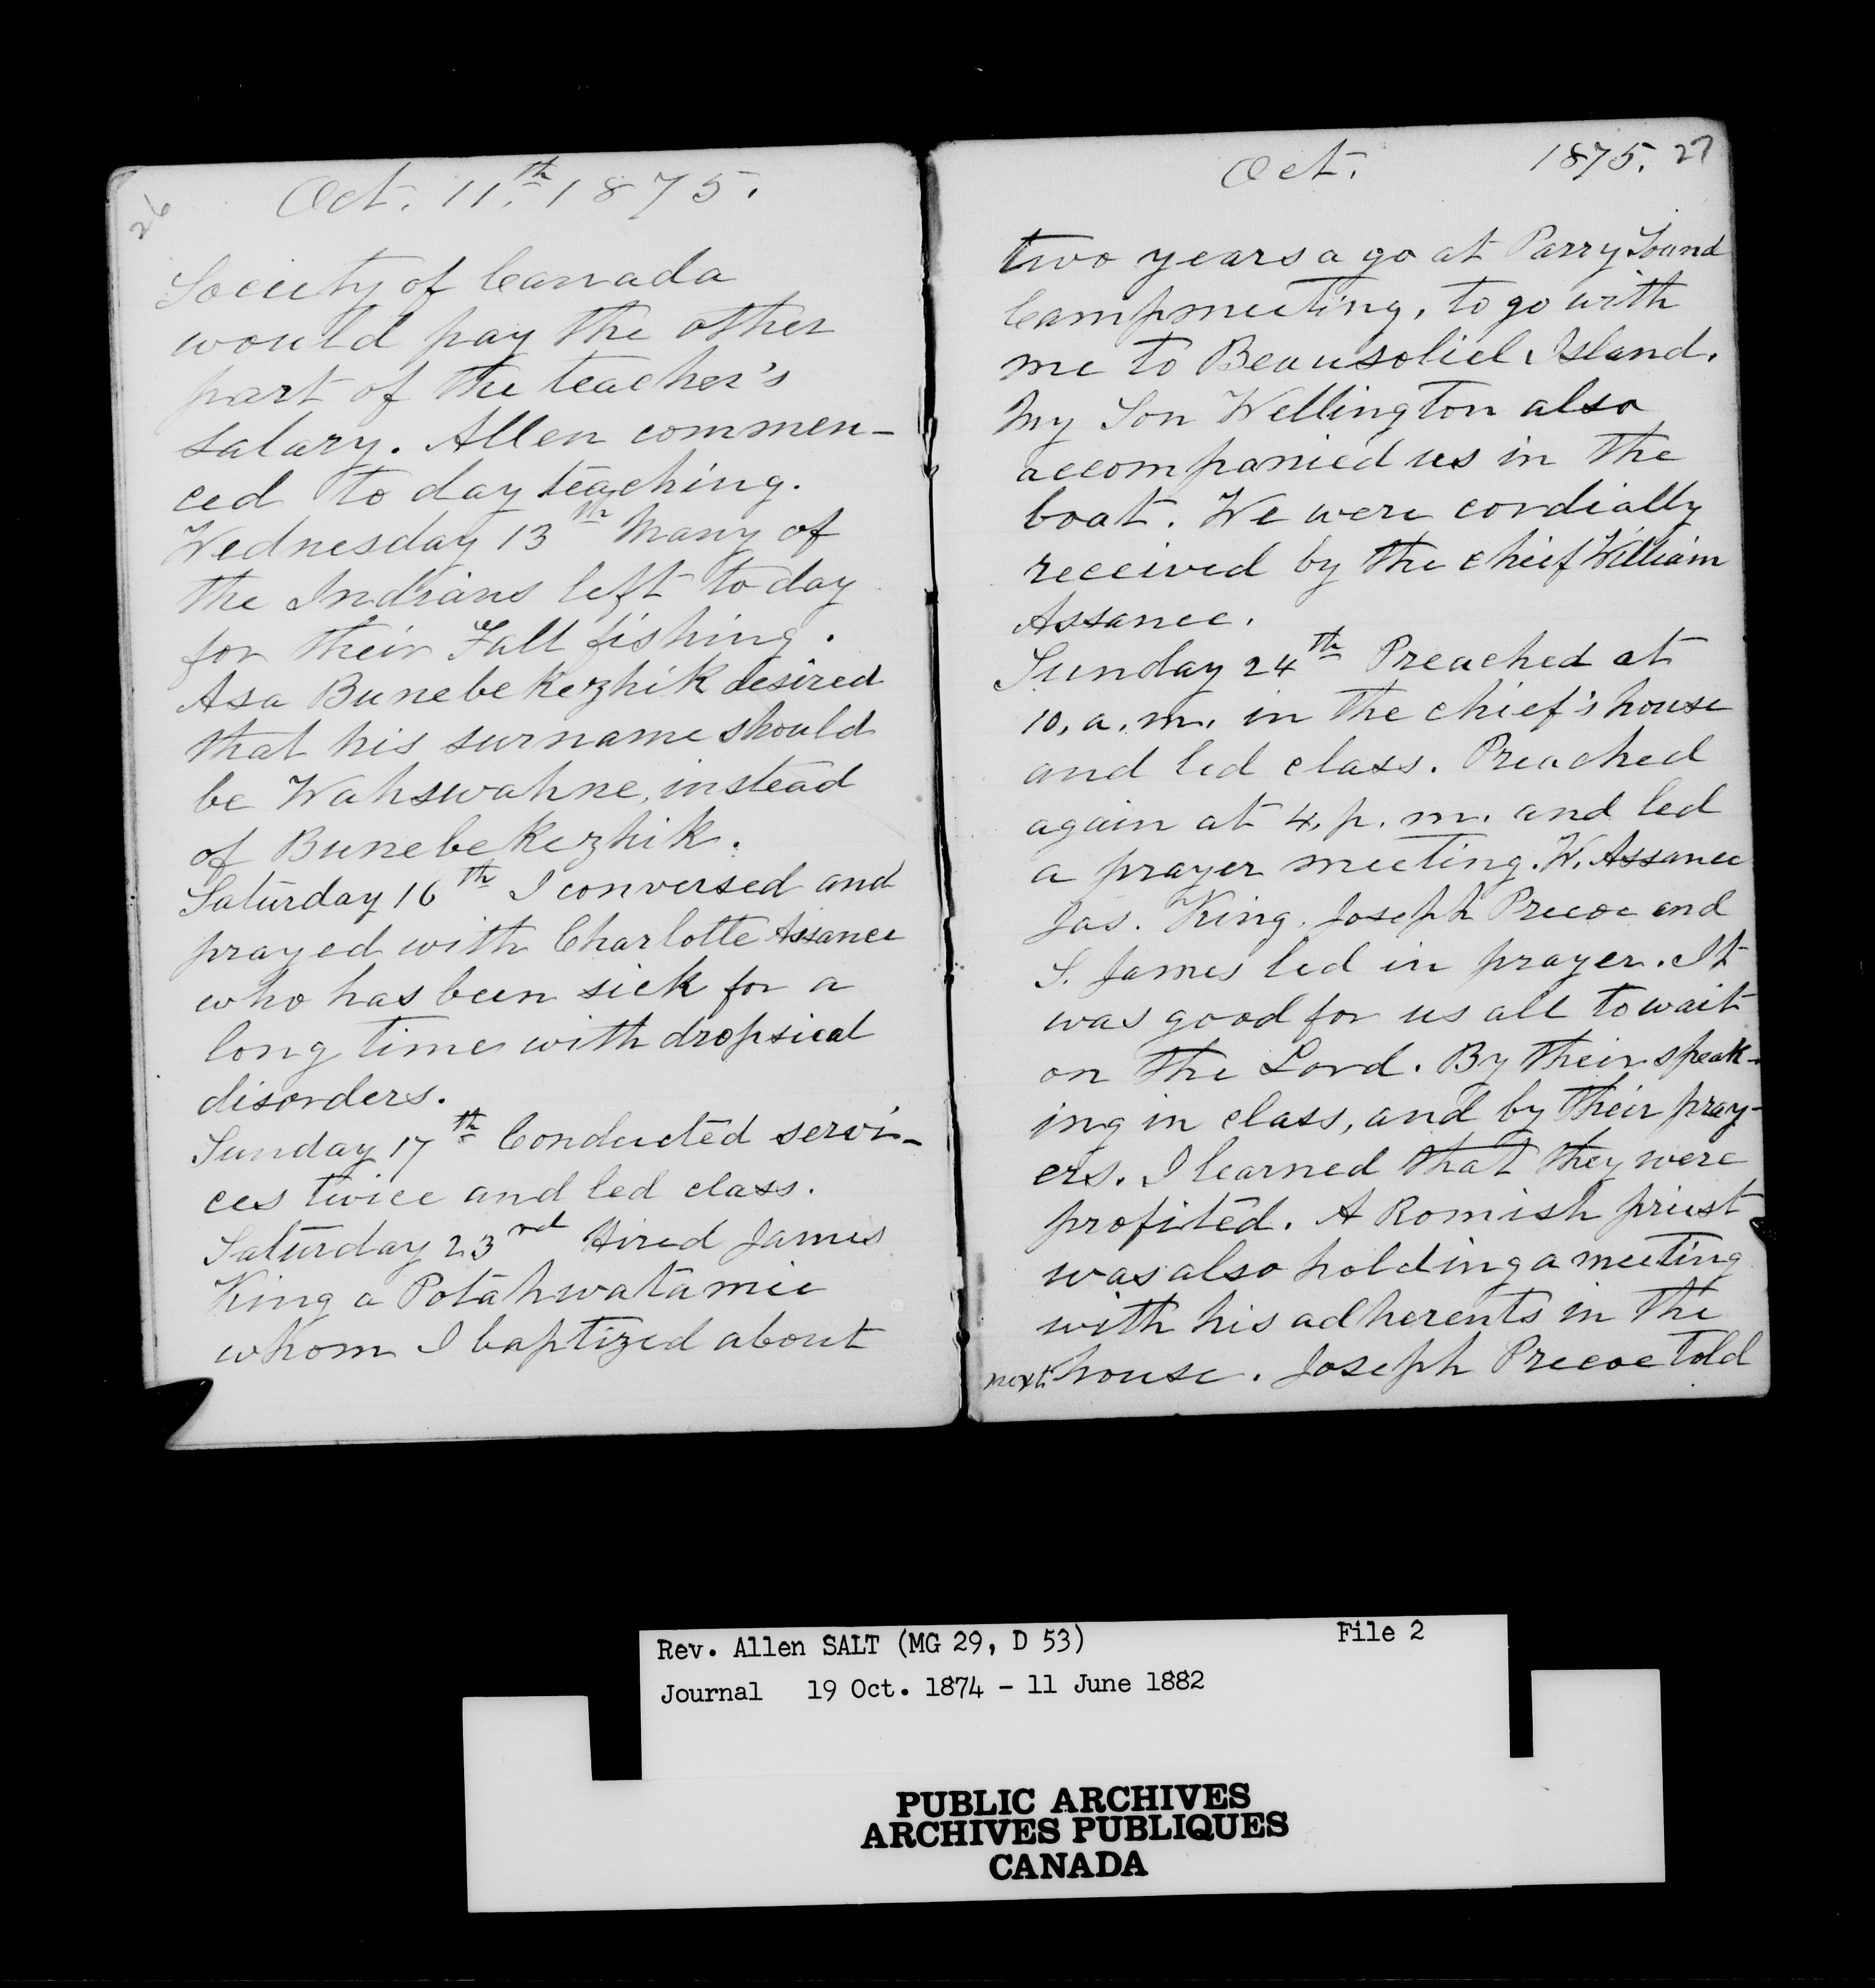 26
Oct. 11th. 1875.
Society of Canada
would pay the other
part of the teacher's
salary. Allen commen-
ced to day teaching.
Wednesday 13th Many of
the Indians left to day
for their Fall fishing.
Asa Bunebekezhik desired
that his surname should
be Wahswahne, instead
of Bunebekezhik.
Saturday 16th I conversed and
prayed with Charlotte Assance
who has been sick for a
long time with dropsical
disorders.
Sunday 17th Conducted servi-
ces twice and led class.
Saturday 23rd Hired James
King a Potahwatamie
whom I baptized about
Oct. 1875. 27
two years ago at Parry Sound
Campmeeting, to go with
me to Beausoliel Island.
My Son Wellington also
accompanied us in the
boat. We were cordially
received by the chief William
Assance.
Sunday 24th Preached at
10, a. m. in the chief's house
and led class. Preached
again at 4, p. m. and led
a prayer meeting. W. Assance
Jas. King, Joseph Precoe and
S. James led in prayer. It
was good for us all to wait
on the Lord. By their speak-
ing in class, and by their pray-
ers. I learned that they were
profited. A Romish priest
was also holding a meeting
with his adherents in the
next house. Joseph Precoe told
Rev. Allen SALT (MG 29, D 53) File 2
Journal 19 Oct. 1874 - 11 June 1882
PUBLIC ARCHIVES
ARCHIVES PUBLIQUES
CANADA